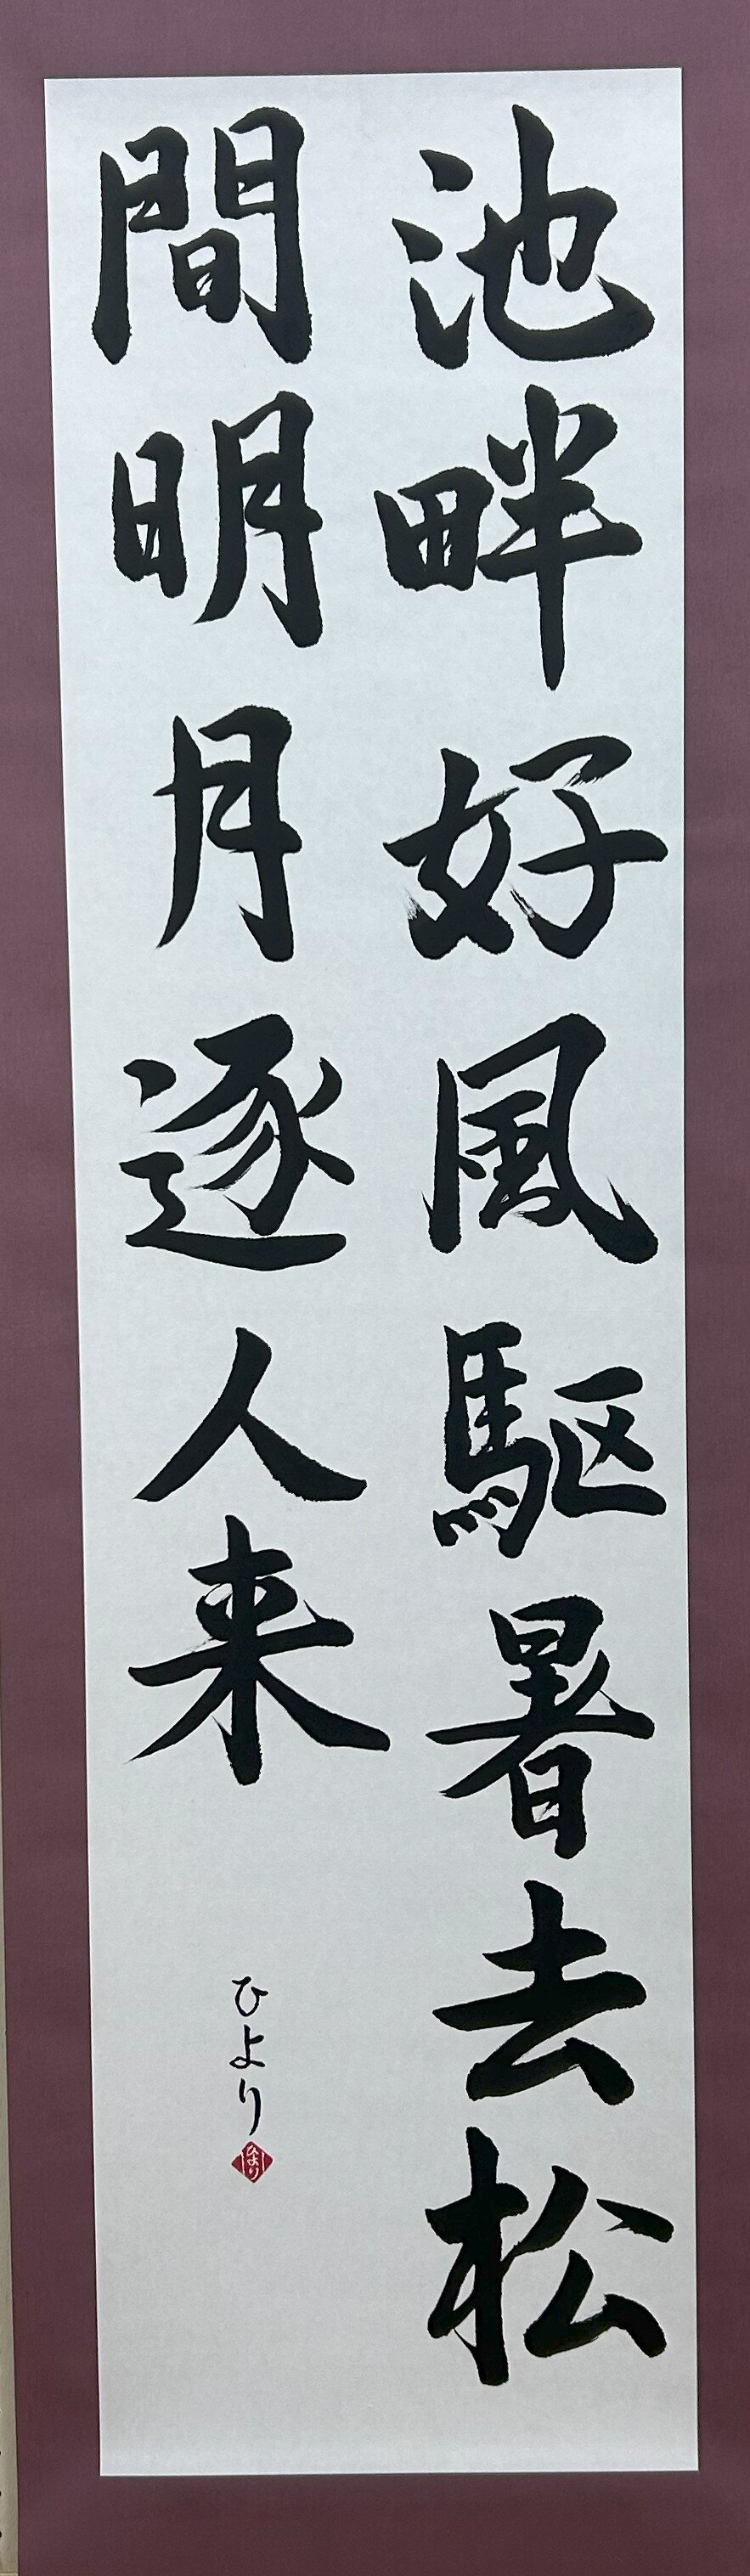 池畔好風駆暑去松
間明月逐人来
ひより
ひより